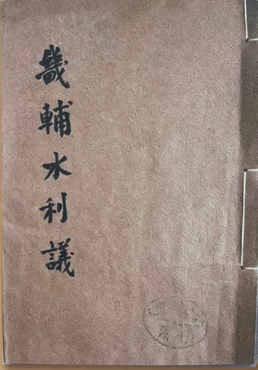 畿輔水利議